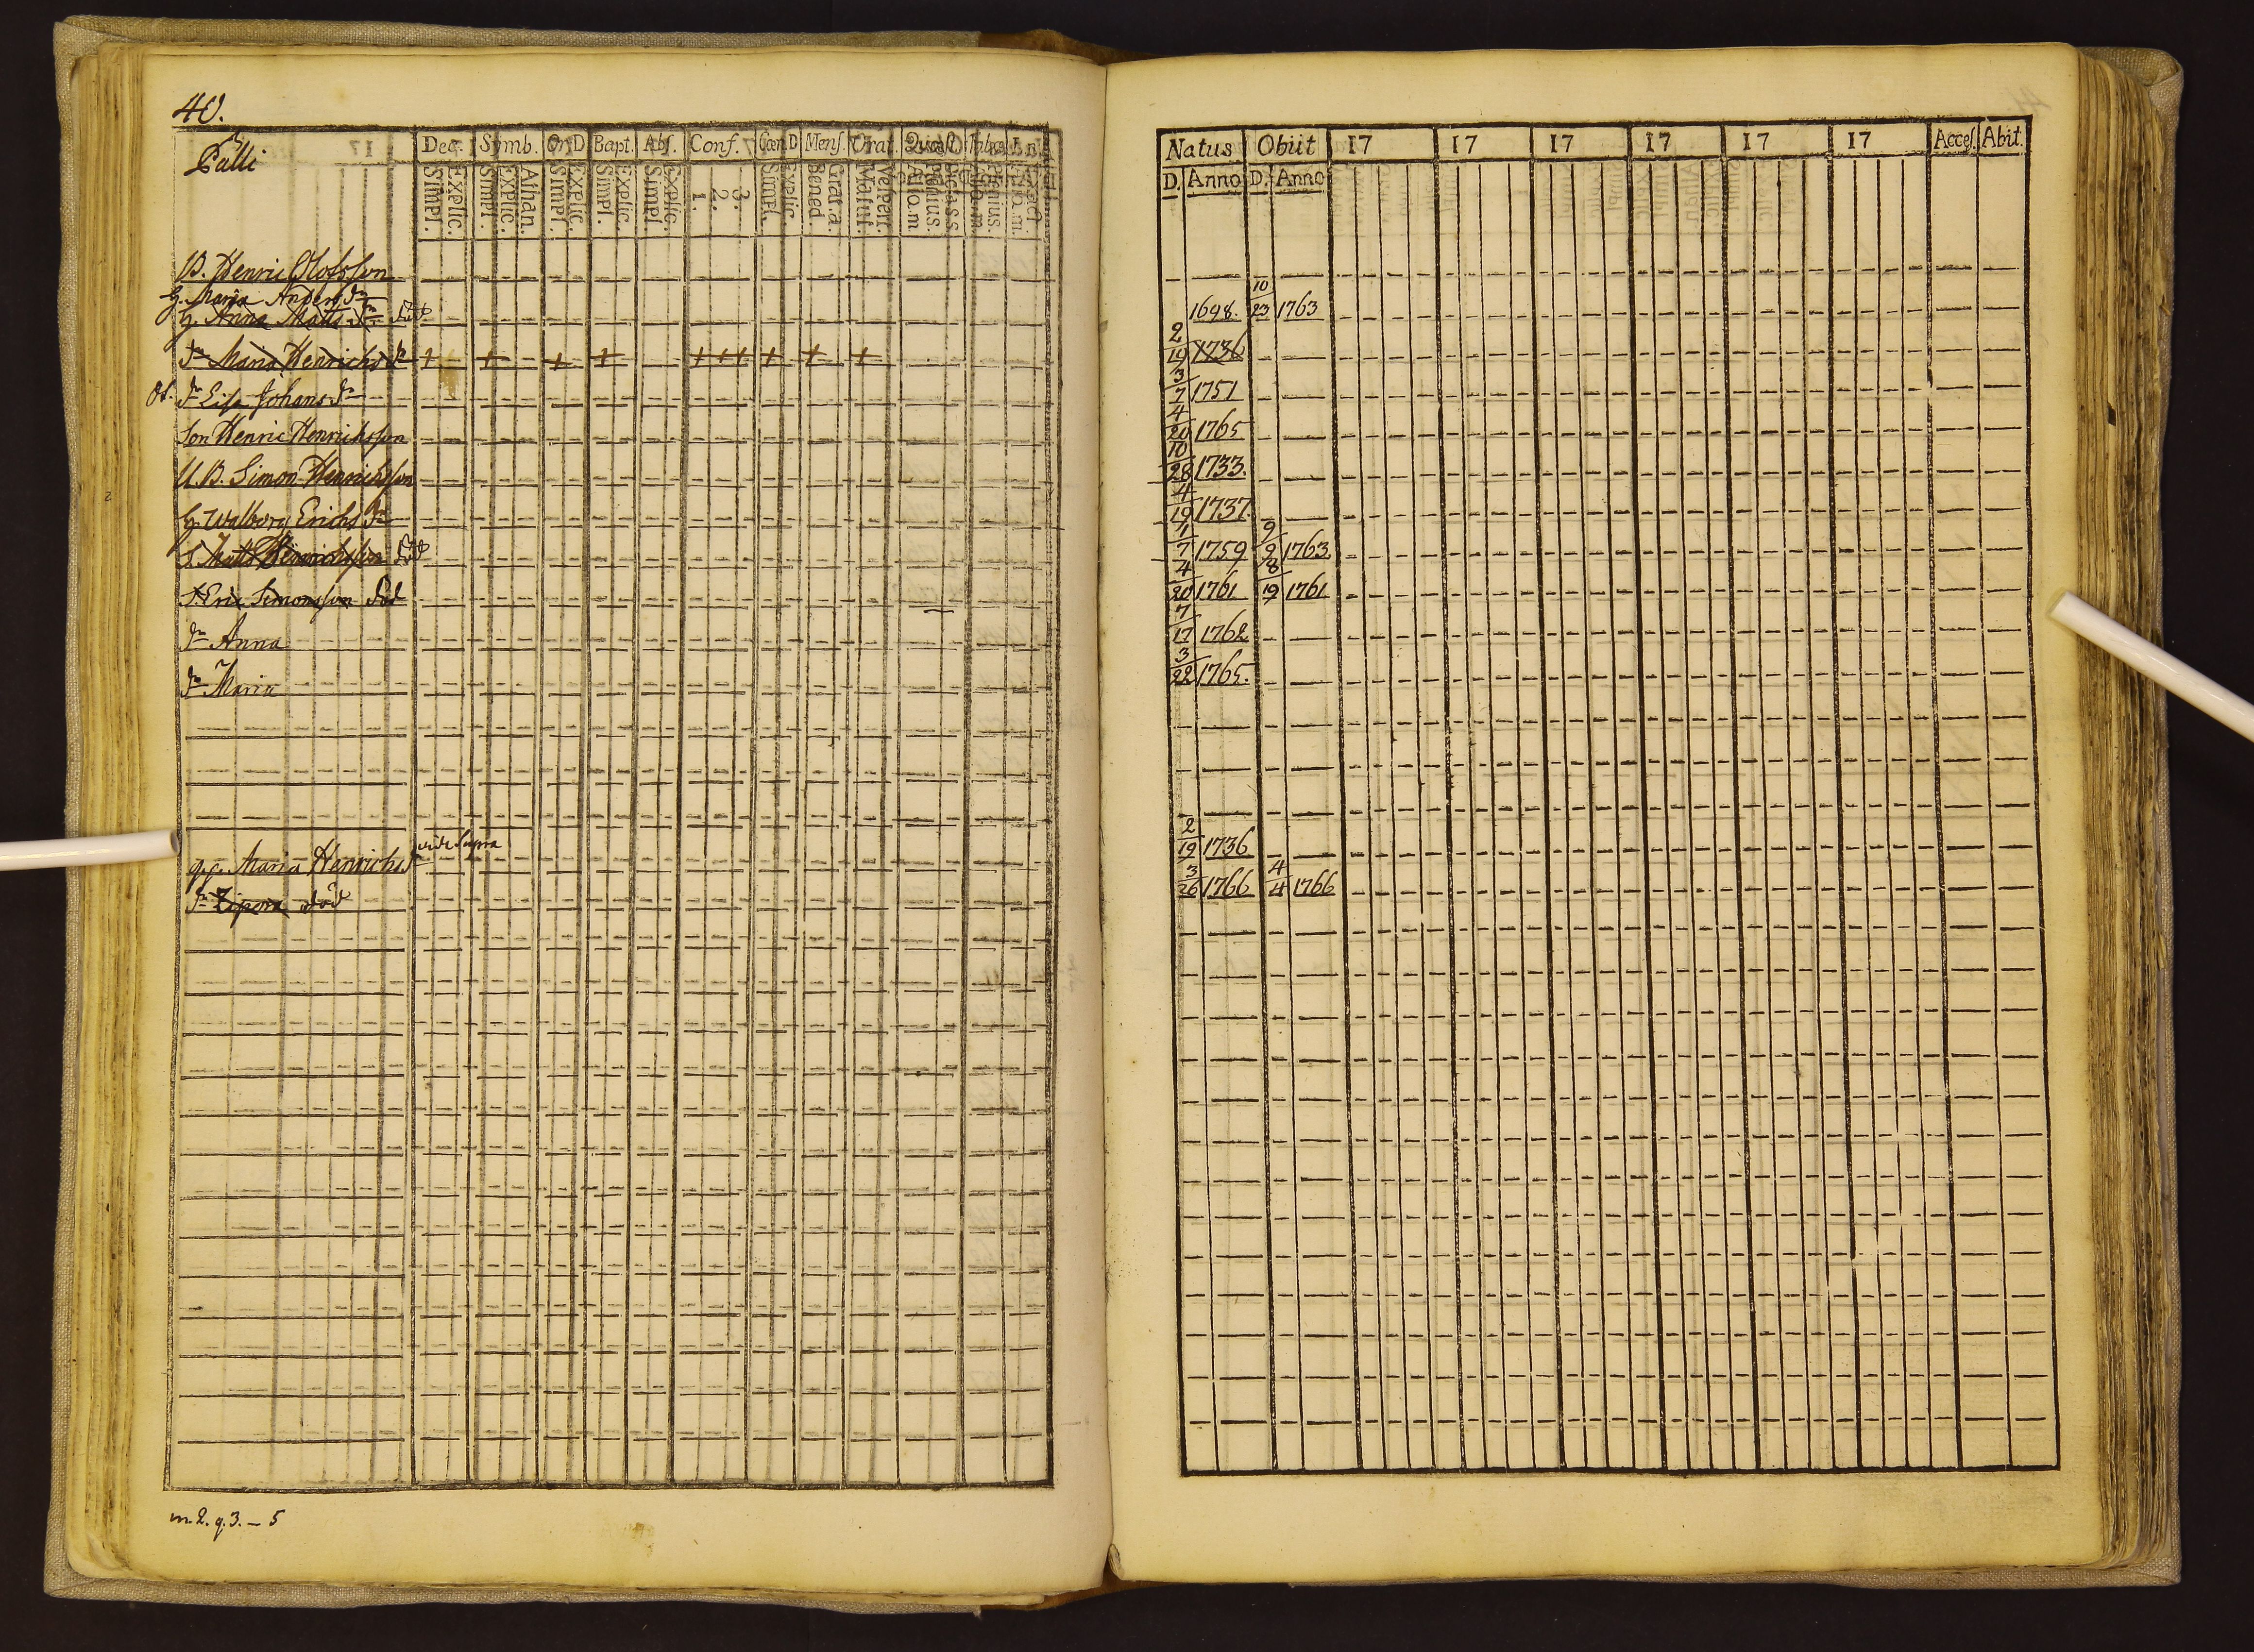 40.
Pulli
17
Dec. Symb. Or. D Bapt. Abs. Conf. Cœn. D Mens. Orat. Quæst.
Simpl. Explic. Simpl. Explic. Athan. Simpl. Explic. Simpl. Explic. Simpl. Explic. 1. 2. 3. Simpl. Explic. Bened. Grat. a. Matut. Vespert.
Natus Obiit 17 17 17 17 17 17 Acces. Abit.
D. Anno D. Anno
B. Henric Olofsson
H. Maria Anders dr
H. Anna Matts dr död 1698. 10/23 1763
dr Maria Henrichs dr + + + + + + + + + + 2/19 1736
dr Lisa Johans dr 3/7 1751
Son Henric Henrichsson 4/20 1765
U. B. Simon Henrichsson 10/28 1733.
H. Walborg Erichs dr 4/19 1737.
S. Matts Henrichsson död 1/7 1759 9/9 1763
S. Eric Simonsson död 4/20 1761 8/19 1761
dr Anna 7/17 1762
dr Maria 3/22 1765.
vide supra
q.p. Maria Henrichs dr 2/19 1736
dr Zipora död 3/26 1766 4/4 1766
m. 2. q. 3. – 5